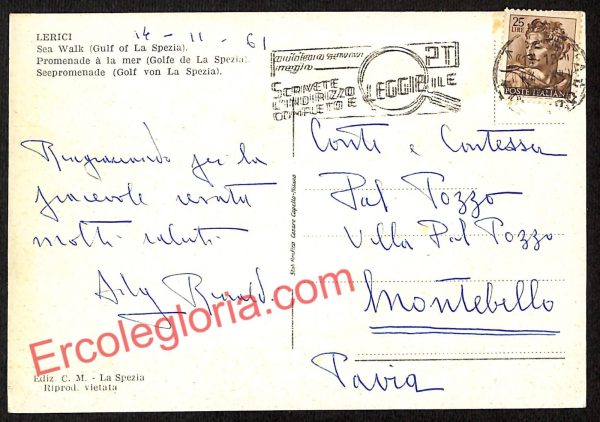 LERICI
14 - 11 - 61
Sea Walk (Gulf of La Spezia).
Promenade à la mer (Golfe de La Spezia).
Seepromenade (Golf von La Spezia).
SCRIVETE
L'INDIRIZZO
COMPLETO E
LEGGIBILE
PT
25
LIRE
POSTE ITALIANE
Ringraziando per la
piacevole serata
molti saluti
Conte e Contessa
Dal Pozzo
Villa Dal Pozzo
Montebello
Pavia
Ediz. C. M. - La Spezia
Riprod. vietata
Ercolegloria.com